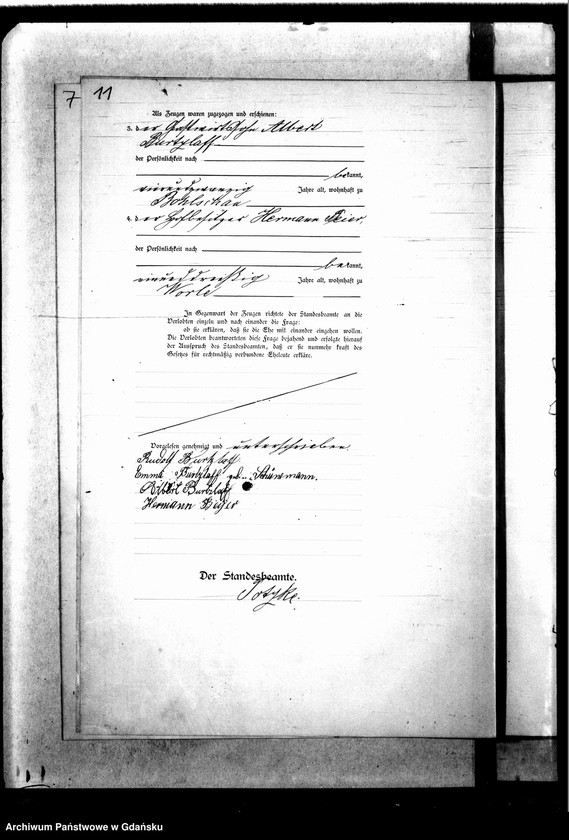 7 11
Als Zeugen waren zugezogen und erschienen:
3. der Gastwirtssohn Albert
Burtzlaff
der Persönlichkeit nach
bekannt,
einundzwanzig Jahre alt, wohnhaft zu
Bohlschau
4. der Hofbesitzer Hermann Beier,
der Persönlichkeit nach
bekannt,
einunddreißig Jahre alt, wohnhaft zu
Worle
In Gegenwart der Zeugen richtete der Standesbeamte an die
Verlobten einzeln und nach einander die Frage:
ob sie erklären, daß sie die Ehe mit einander eingehen wollen.
Die Verlobten beantworteten diese Frage bejahend und erfolgte hierauf
der Ausspruch des Standesbeamten, daß er sie nunmehr kraft des
Gesetzes für rechtmäßig verbundene Eheleute erkläre.
Vorgelesen genehmigt und unterschrieben
Rudolf Burtzlaff
Emma Burtzlaff geb.
Albert Burtzlaff
Hermann Beyer
Der Standesbeamte.
Archiwum Państwowe w Gdańsku